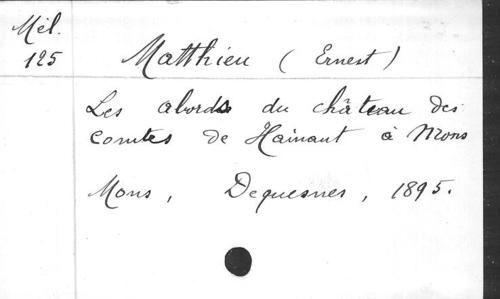 Mél.
125
Matthieu (Ernest)
Les abords du château des
comtes de Hainaut à Mons
Mons, Dequesnes, 1895.